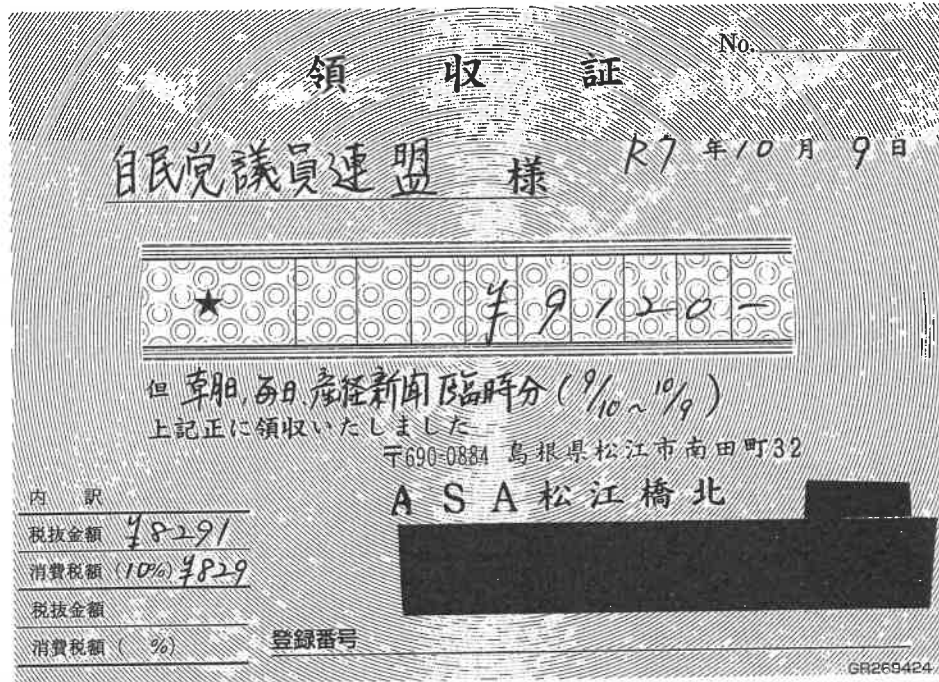 No.
領収証
自民党議員連盟 様
R7年10月9日
★ ¥9120-
但 朝日,毎日,産経新聞臨時分(9/10~10/9)
上記正に領収いたしました
〒690-0884 島根県松江市南田町32
ASA松江橋北
内訳
税抜金額 ¥8291
消費税額(10%) ¥829
税抜金額
消費税額( %)
登録番号
GR269424